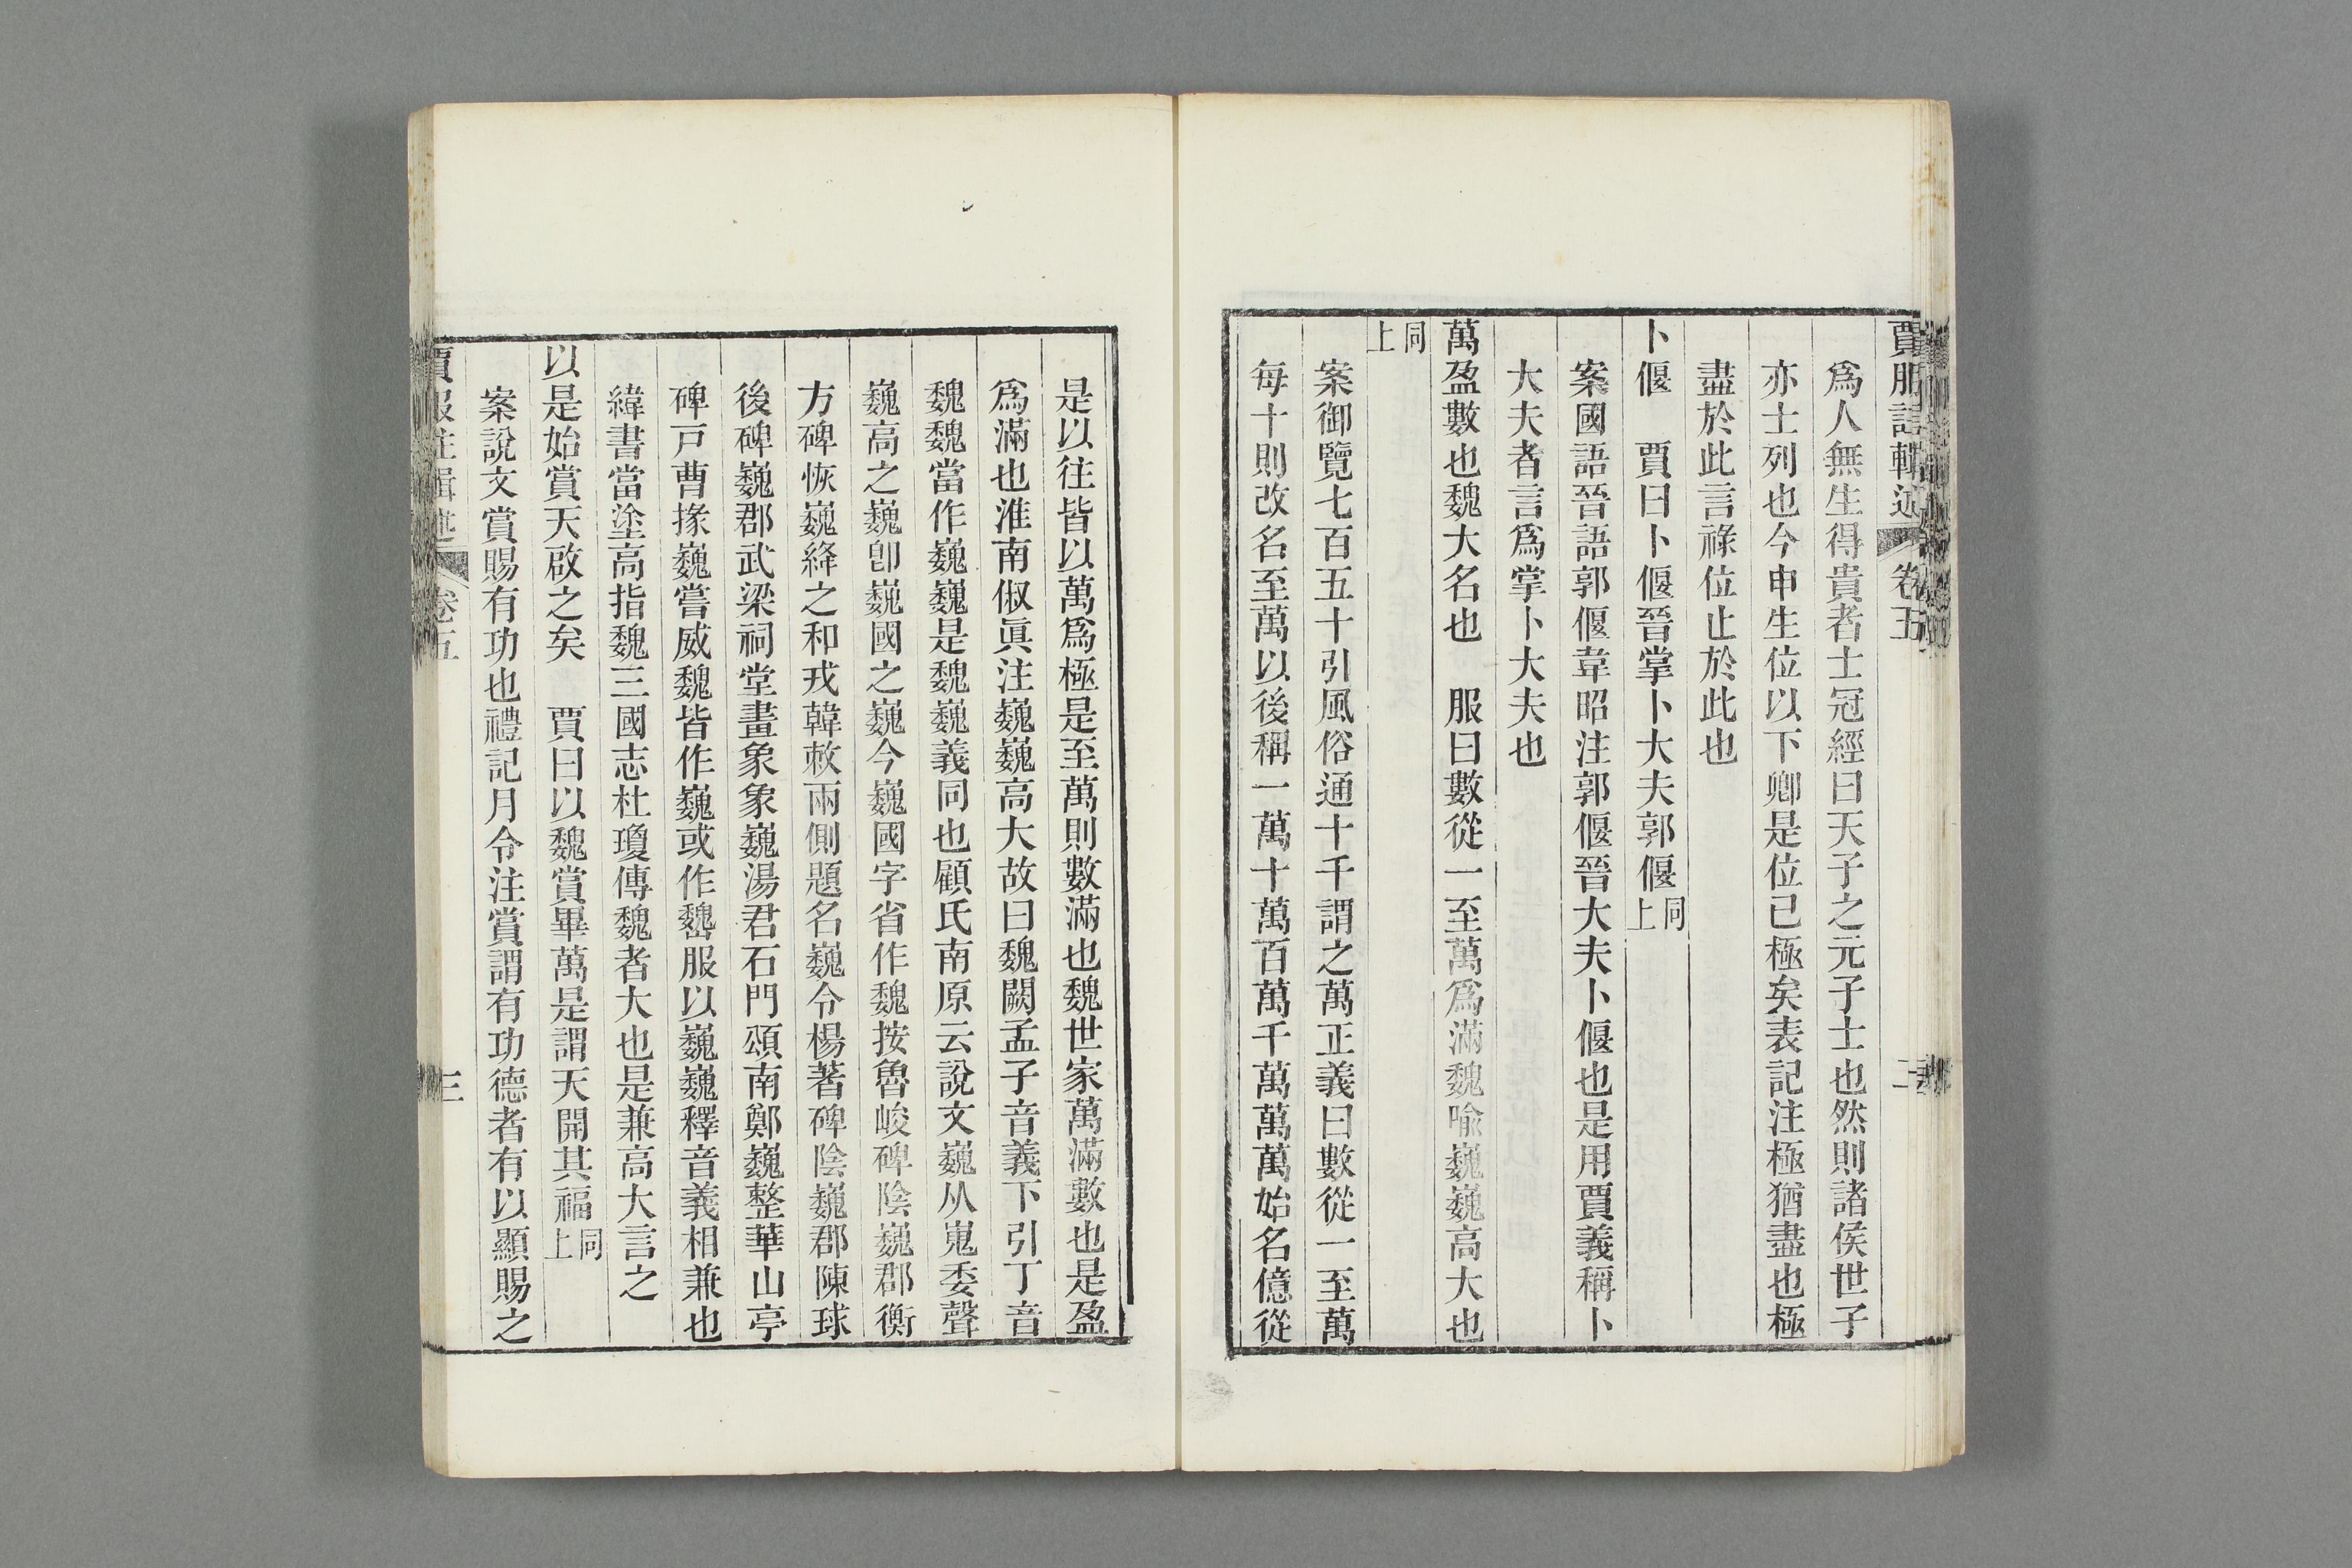 賈服注輯述 卷五 二
爲人無生得貴者士冠經曰天子之元子士也然則諸侯世子
亦士列也今申生位以下卿是位已極矣表記注極猶盡也極
盡於此言祿位止於此也
卜偃 賈曰卜偃晉掌卜大夫郭偃同上
案國語晉語郭偃韋昭注郭偃晉大夫卜偃也是用賈義稱卜
大夫者言爲掌卜大夫也
萬盈數也魏大名也 服曰數從一至萬爲滿魏喩巍巍高大也
同上
案御覽七百五十引風俗通十千謂之萬正義曰數從一至萬
每十則改名至萬以後稱一萬十萬百萬千萬萬萬始名億從
是以往皆以萬爲極是至萬則數滿也魏世家萬滿數也是盈
爲滿也淮南俶眞注巍巍高大故曰魏闕孟子音義下引丁音
魏魏當作巍巍是魏巍義同也顧氏南原云說文巍从嵬委聲
巍高之巍卽巍國之巍今巍國字省作魏按魯峻碑陰巍郡衡
方碑恢巍絳之和戎韓敕兩側題名巍令楊著碑陰巍郡陳球
後碑巍郡武梁祠堂畫象象巍湯君石門頌南鄭巍整華山亭
碑戸曹掾巍嘗威魏皆作巍或作巍服以巍巍釋音義相兼也
緯書當塗高指魏三國志杜瓊傳魏者大也是兼高大言之
以是始賞天啟之矣 賈曰以魏賞畢萬是謂天開其福同上
案說文賞賜有功也禮記月令注賞謂有功德者有以顯賜之
賈服注輯述 卷五 三